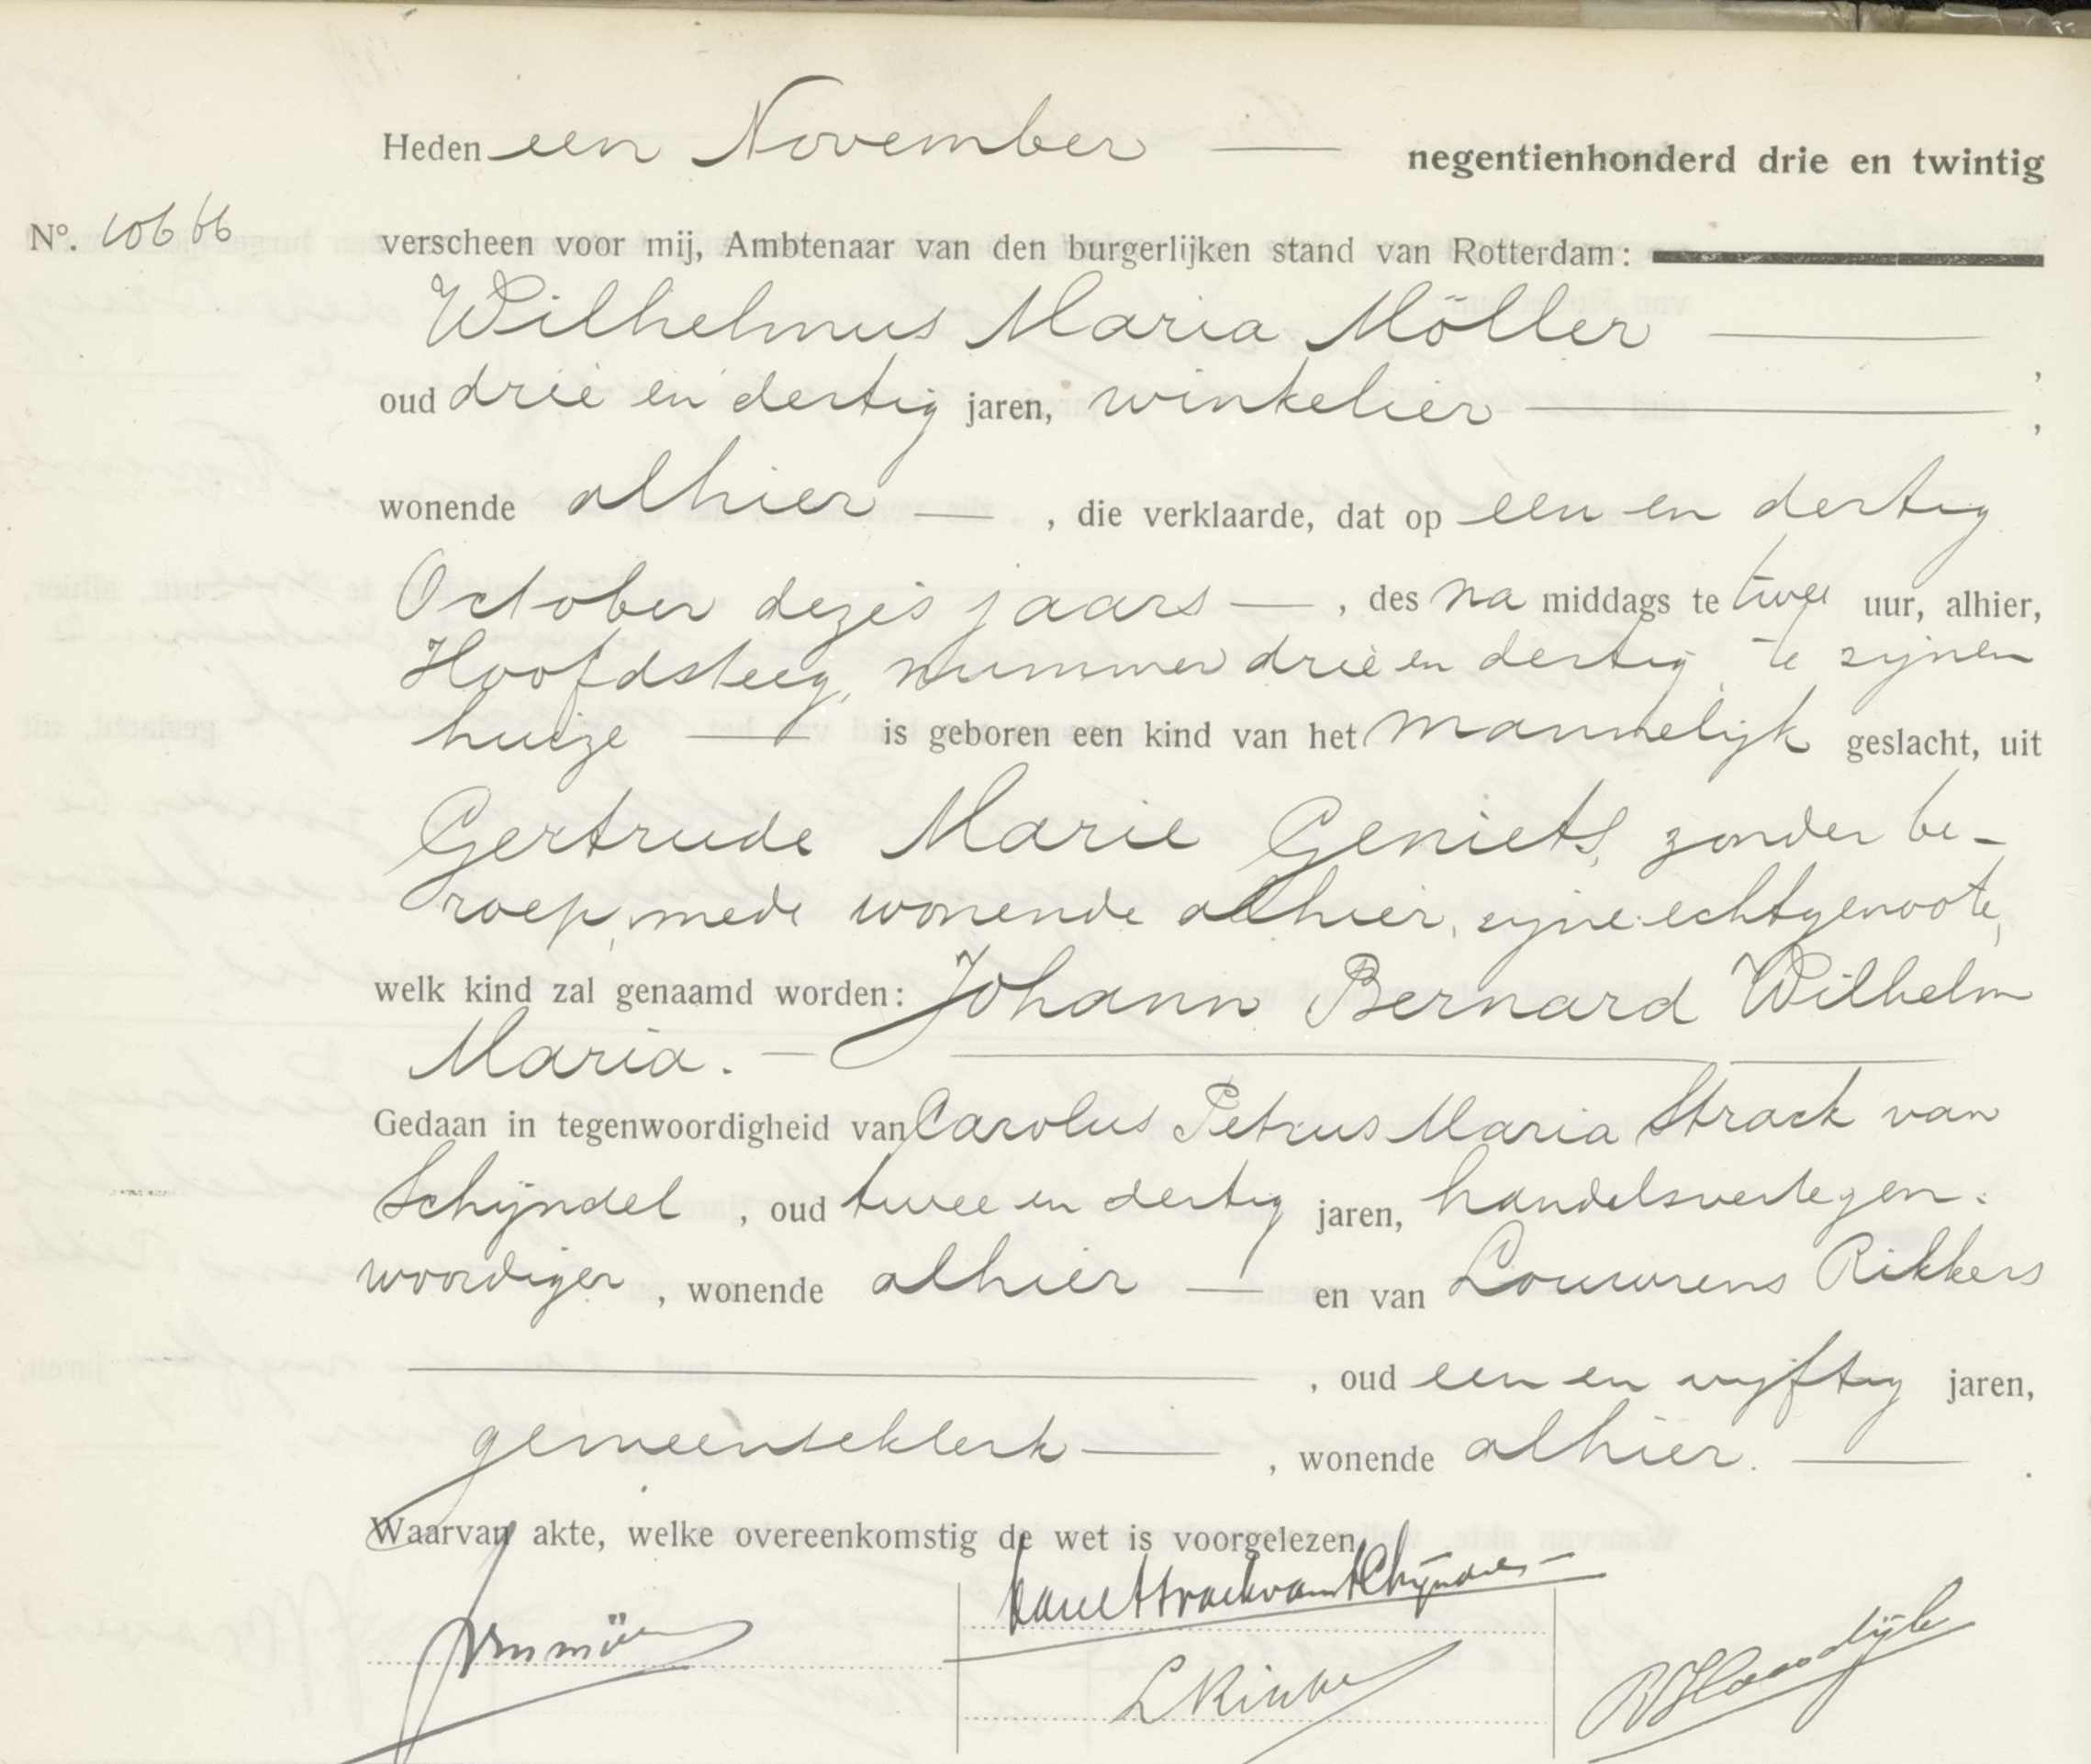 Heden een November — negentienhonderd drie en twintig
No. 10666 verscheen voor mij, Ambtenaar van den burgerlijken stand van Rotterdam:
Wilhelmus Maria Möller — ,
oud drie en dertig jaren, winkelier — ,
wonende alhier — , die verklaarde, dat op een en dertig
October dezes jaars — , des na middags te twee uur, alhier,
Hoofdsteeg, nummer drie en dertig, te zijnen
huize — is geboren een kind van het mannelijk geslacht, uit
Gertrude Marie Geniets, zonder be-
roep, mede wonende alhier, zijne echtgenoote,
welk kind zal genaamd worden: Johann Bernard Wilhelm
Maria. —
Gedaan in tegenwoordigheid van Carolus Petrus Maria Strack van
Schijndel , oud twee en dertig jaren, handelsvertegen-
woordiger , wonende alhier — en van Louwrens Rikkers
— , oud een en vijftig jaren,
gemeenteklerk — , wonende alhier. — .
Waarvan akte, welke overeenkomstig de wet is voorgelezen.